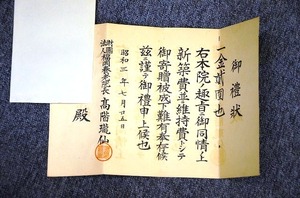 御禮狀
一金貳圓也
右本院ノ趣旨ニ御同情ノ上
新築費並維持費トシテ
御寄贈被成下難有奉存候
茲ニ謹テ御禮申上候也
昭和三年七月廿五日
財團法人福岡養老院長 高階瓏仙
殿